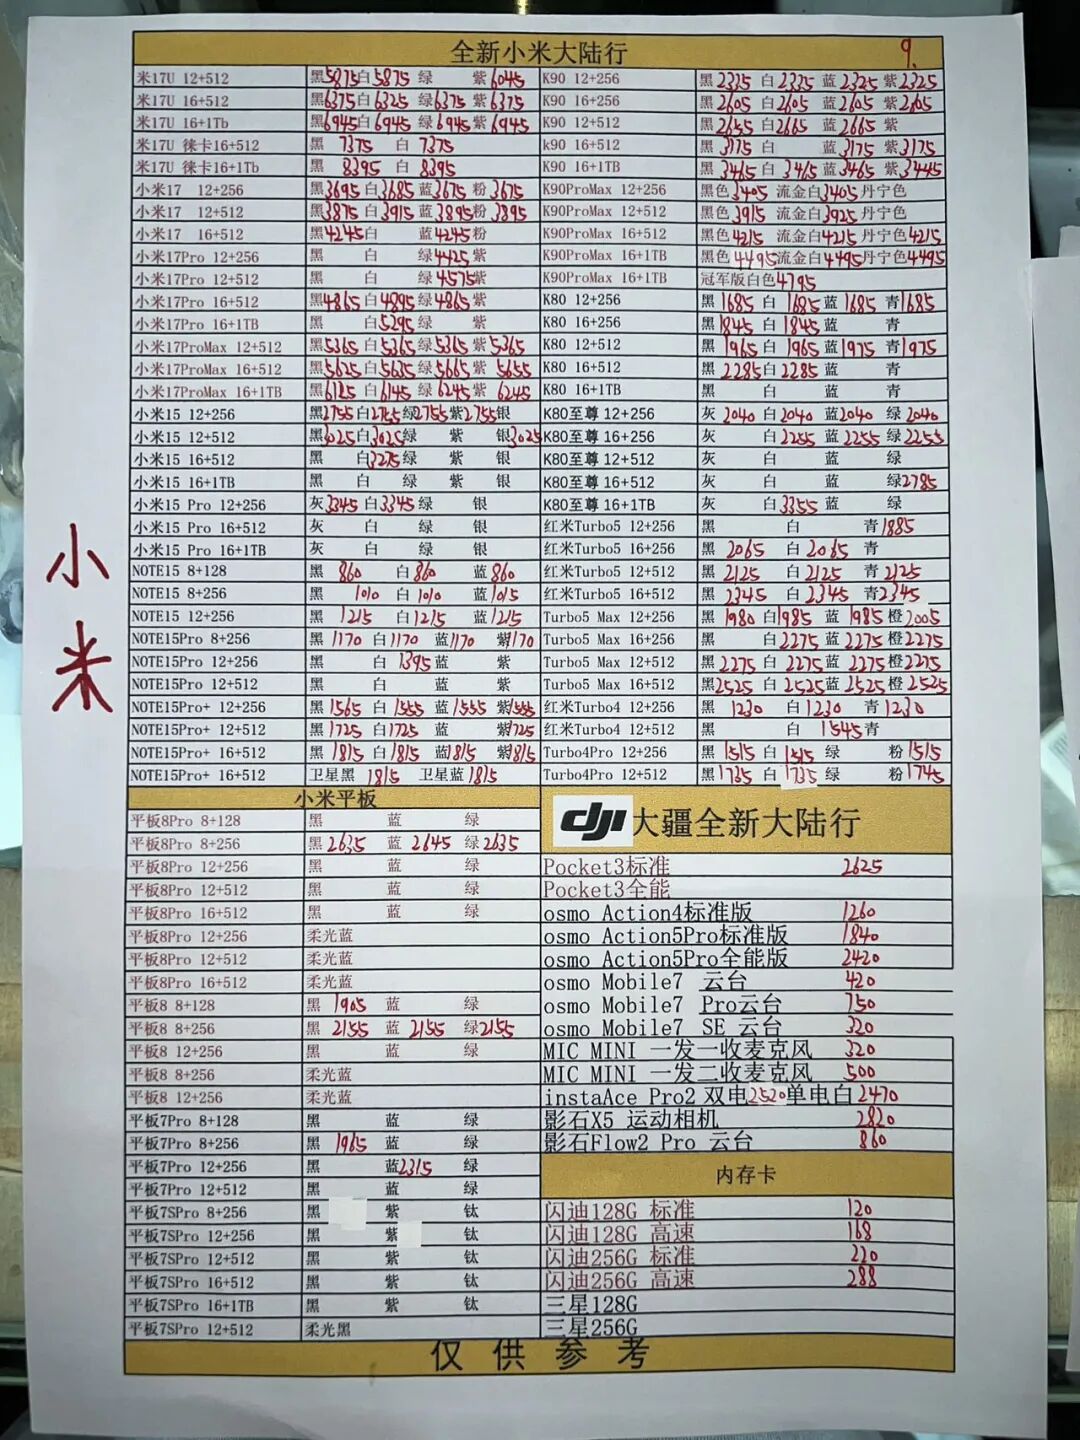 全新小米大陆行 9.
米17U 12+512 黑5875白5875 绿 紫6045
米17U 16+512 黑6375白6325 绿6375 紫6375
米17U 16+1Tb 黑6945白6945 绿6945紫6945
米17U 徕卡16+512 黑 7375 白 7375
米17U 徕卡16+1Tb 黑 8395 白 8395
小米17 12+256 黑3695 白3685蓝3675 粉 3675
小米17 12+512 黑3875 白3915 蓝3895粉 3895
小米17 16+512 黑4245白 蓝4245粉
小米17Pro 12+256 黑 白 绿4425紫
小米17Pro 12+512 黑 白 绿4575紫
小米17Pro 16+512 黑4865白4895绿4865紫
小米17Pro 16+1TB 黑 白5295绿 紫
小米17ProMax 12+512 黑5365白5365绿5365紫5365
小米17ProMax 16+512 黑5625白5635绿5665紫5655
小米17ProMax 16+1TB 黑6125白6145绿6245紫 6245
小米15 12+256 黑2755白2755绿2755紫2755银
小米15 12+512 黑3025白3025绿 紫 银3025
小米15 16+512 黑 白3275绿 紫 银
小米15 16+1TB 黑 白 绿 紫 银
小米15 Pro 12+256 灰3345白3345绿 银
小米15 Pro 16+512 灰 白 绿 银
小米15 Pro 16+1TB 灰 白 绿 银
NOTE15 8+128 黑 860 白860 蓝860
NOTE15 8+256 黑 1010 白1010 蓝1015
NOTE15 12+256 黑 1215 白1215 蓝1215
NOTE15Pro 8+256 黑 1170 白1170 蓝1170 紫1170
NOTE15Pro 12+256 黑 白 1395蓝 紫
NOTE15Pro 12+512 黑 白 蓝 紫
NOTE15Pro+ 12+256 黑 1565 白1555 蓝1555 紫1555
NOTE15Pro+ 12+512 黑1725 白1725 蓝 紫1725
NOTE15Pro+ 16+512 黑 1815 白1815 蓝1815 紫1815
NOTE15Pro+ 16+512 卫星黑 1815 卫星蓝1815
K90 12+256 黑2335 白2335 蓝2325紫2325
K90 16+256 黑2605白2605 蓝2605 紫2605
K90 12+512 黑2655 白2665 蓝2665 紫
k90 16+512 黑3175 白 蓝3175 紫3175
K90 16+1TB 黑3465白3465蓝3465 紫3445
K90ProMax 12+256 黑色3405 流金白3405丹宁色
K90ProMax 12+512 黑色3915 流金白3925丹宁色
K90ProMax 16+512 黑色4215 流金白4215丹宁色4215
K90ProMax 16+1TB 黑色4495流金白4495丹宁色4495
K90ProMax 16+1TB 冠军版白色4795
K80 12+256 黑 1685 白 1685蓝 1685 青1685
K80 16+256 黑1845 白1845蓝 青
K80 12+512 黑 1965 白 1965 蓝1975 青1975
K80 16+512 黑 2285白2285 蓝 青
K80 16+1TB 黑 白 蓝 青
K80至尊 12+256 灰 2040 白2040 蓝2040 绿2040
K80至尊 16+256 灰 白2255 蓝2255绿2255
K80至尊 12+512 灰 白 蓝 绿
K80至尊 16+512 灰 白 蓝 绿2785
K80至尊 16+1TB 灰 白3355蓝 绿
红米Turbo5 12+256 黑 白 青1885
红米Turbo5 16+256 黑 2065 白2065 青
红米Turbo5 12+512 黑 2125 白2125 青2125
红米Turbo5 16+512 黑 2345 白2345 青2345
Turbo5 Max 12+256 黑 1980 白1985 蓝1985橙2005
Turbo5 Max 16+256 黑 白2275 蓝2275橙2275
Turbo5 Max 12+512 黑2275 白2275蓝2275橙2275
Turbo5 Max 16+512 黑2525 白2525蓝2525橙2525
红米Turbo4 12+256 黑 1230 白1230 青1230
红米Turbo4 12+512 黑 白 1545青
Turbo4Pro 12+256 黑 1515 白1515 绿 粉1515
Turbo4Pro 12+512 黑1735 白1735 绿 粉1745
小米
小米平板
平板8Pro 8+128 黑 蓝 绿
平板8Pro 8+256 黑 2635 蓝 2645 绿2635
平板8Pro 12+256 黑 蓝 绿
平板8Pro 12+512 黑 蓝 绿
平板8Pro 16+512 黑 蓝 绿
平板8Pro 12+256 柔光蓝
平板8Pro 12+512 柔光蓝
平板8Pro 16+512 柔光蓝
平板8 8+128 黑 1905 蓝 绿
平板8 8+256 黑 2155 蓝 2155 绿2155
平板8 12+256 黑 蓝 绿
平板8 8+256 柔光蓝
平板8 12+256 柔光蓝
平板7Pro 8+128 黑 蓝 绿
平板7Pro 8+256 黑 1965 蓝 绿
平板7Pro 12+256 黑 蓝2315 绿
平板7Pro 12+512 黑 蓝 绿
平板7SPro 8+256 黑 紫 钛
平板7SPro 12+256 黑 紫 钛
平板7SPro 12+512 黑 紫 钛
平板7SPro 16+512 黑 紫 钛
平板7SPro 16+1TB 黑 紫 钛
平板7SPro 12+512 柔光黑
dji大疆全新大陆行
Pocket3标准 2625
Pocket3全能
osmo Action4标准版 1260
osmo Action5Pro标准版 1840
osmo Action5Pro全能版 2420
osmo Mobile7 云台 420
osmo Mobile7 Pro云台 750
osmo Mobile7 SE 云台 320
MIC MINI 一发一收麦克风 320
MIC MINI 一发二收麦克风 500
instaAce Pro2 双电2520单电白2470
影石X5 运动相机 2820
影石Flow2 Pro 云台 860
内存卡
闪迪128G 标准 120
闪迪128G 高速 168
闪迪256G 标准 220
闪迪256G 高速 288
三星128G
三星256G
仅供参考